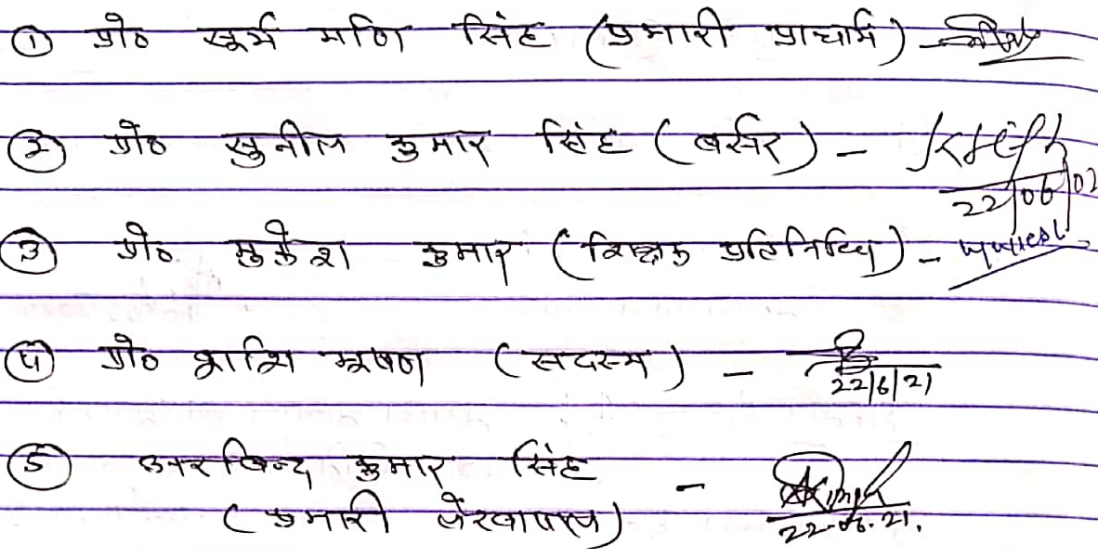 ① प्रो० सूर्य मणि सिंह (प्रभारी प्राचार्य) -
② प्रो० सुनील कुमार सिंह (बर्सर) - 22/06/02
③ प्रो० मुकेश कुमार (शिक्षक प्रतिनिधि) - Mukesh
④ प्रो० शशि भूषण (सदस्य) - 22/6/21
⑤ अरविन्द कुमार सिंह - 22.06.21.
(प्रभारी लेखापाल)